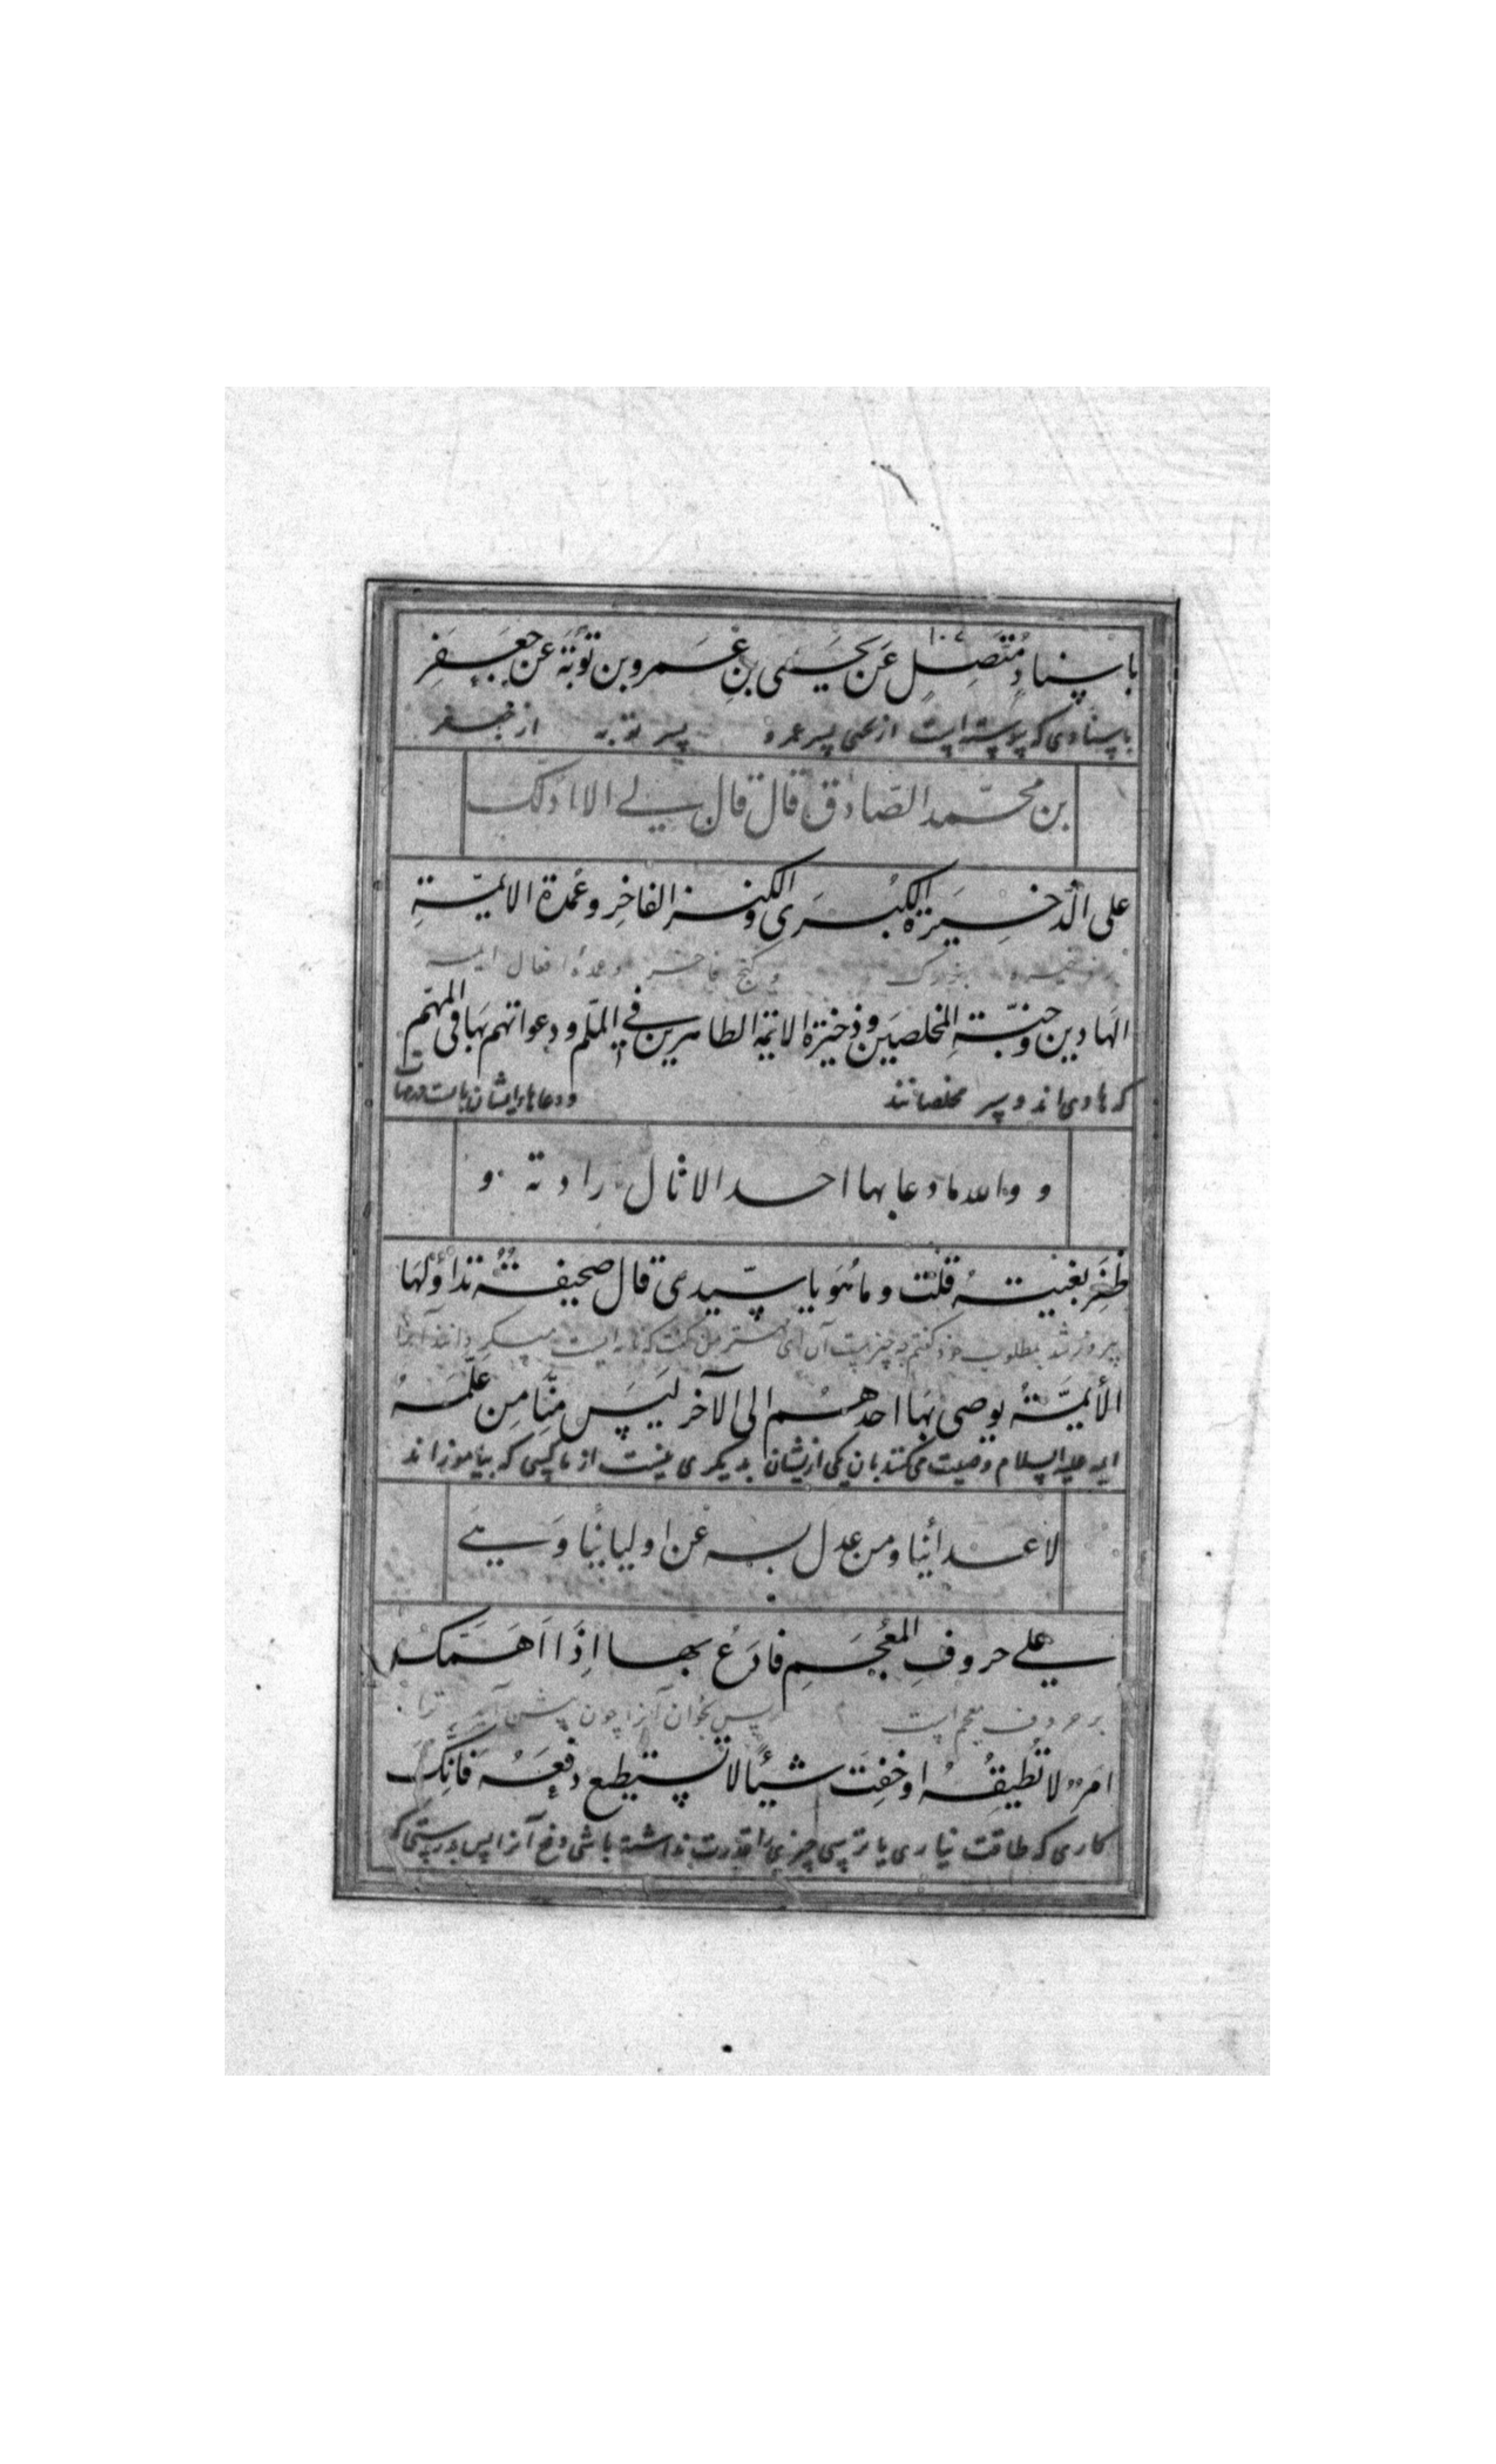 باسنادٍ مُتَّصِلٍ عَن يَحيى بنِ عَمرو بن تَوبَة عَن جَعفَرِ
باسنادی که پیوسته است از یحیی پسر عمرو پسر توبه از جعفر
بن محمّد الصّادق قال قال لي الا ادلّك
على الذّخِيرَة الكُبرَى والكنز الفاخِر وعُمدة الائمّةِ
ذخیره بزرک و کنج فاخر وعمده افعال ایمه
الهَادين وجنّةِ المخلصين وذخيرة الائمّة الطاهرين في الملم ودعواتهم بهَا فى المهّم
که هادی اند و سپر مخلصانند ودعاهای ایشان بانست
و والله ما دعا بها احد الا نال رادته و
ظفر بغنيتهُ قلت وما هُوَ يا سيّدى قال صحيفةٌ تداوُلهَا
پیروز شد بمطلوب خود کفتم چه چیز است آن ای مهتر من کفت که نامه ایست میکردانند آنرا
الأئمّةُ يوصى بهَا احدهُم الى الآخر ليَس منَّا مِن علَّمَهُ
ایمه علیه السلام وصیت میکنند بان یکی از ایشان بدیکری نیست از ما کسی که بیاموزاند
لاعدائِنا ومن عدل به عَن اوليائنا وَ هي
على حروفِ المعجَمِ فادعُ بها اِذَا اَهَمَّكَ
بر حروف معجم است پس بخوان آنرا چون پیش آید ترا
امرٌ لا تُطيقُهُ او خفِتَ شيئًا لا تستطيع دفعَهُ فانّكَ
کاری که طاقت نیاری یا ترسی چیزی را قدرت نداشته باشی دفع آنرا پس بدرستی که